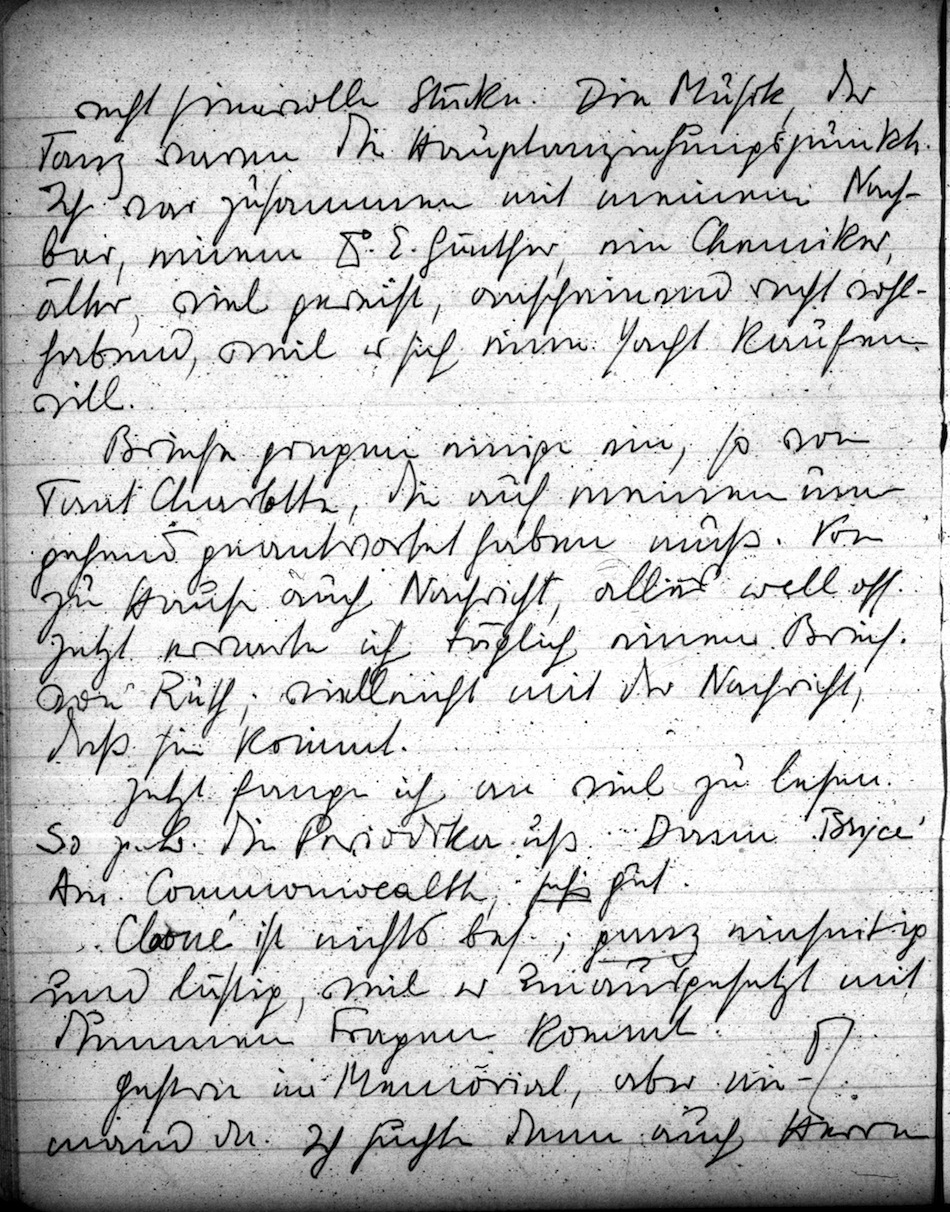 recht sinnvolle Stücke. Die Musik, der
Tanz waren die Hauptanziehungspunkte.
Ich war zusammen mit meinem Nach-
bar, einem Dr. E. Günther, ein Chemiker,
älter, viel gereist, anscheinend recht wohl-
habend, weil er sich eine Yacht kaufen
will.
Briefe gingen einige ein, so von
Tant Charlotte, die auf meinen um-
gehend geantwortet haben muß. Von
zu Hause auch Nachricht, alles well off.
Jetzt erwarte ich täglich einen Brief
von Ruth, vielleicht mit der Nachricht,
daß sie kommt.
Jetzt fange ich an viel zu lesen.
So z.B. die Periodika Dann Bryce'
Am. Commonwealth, sehr gut.
ist nichts bes.; ganz einseitig
und lustig, weil er unausgesetzt mit
dummen Fragen kommt.
Gestern im Memorial, aber nie-
mand da. Ich suchte dann auch Herrn